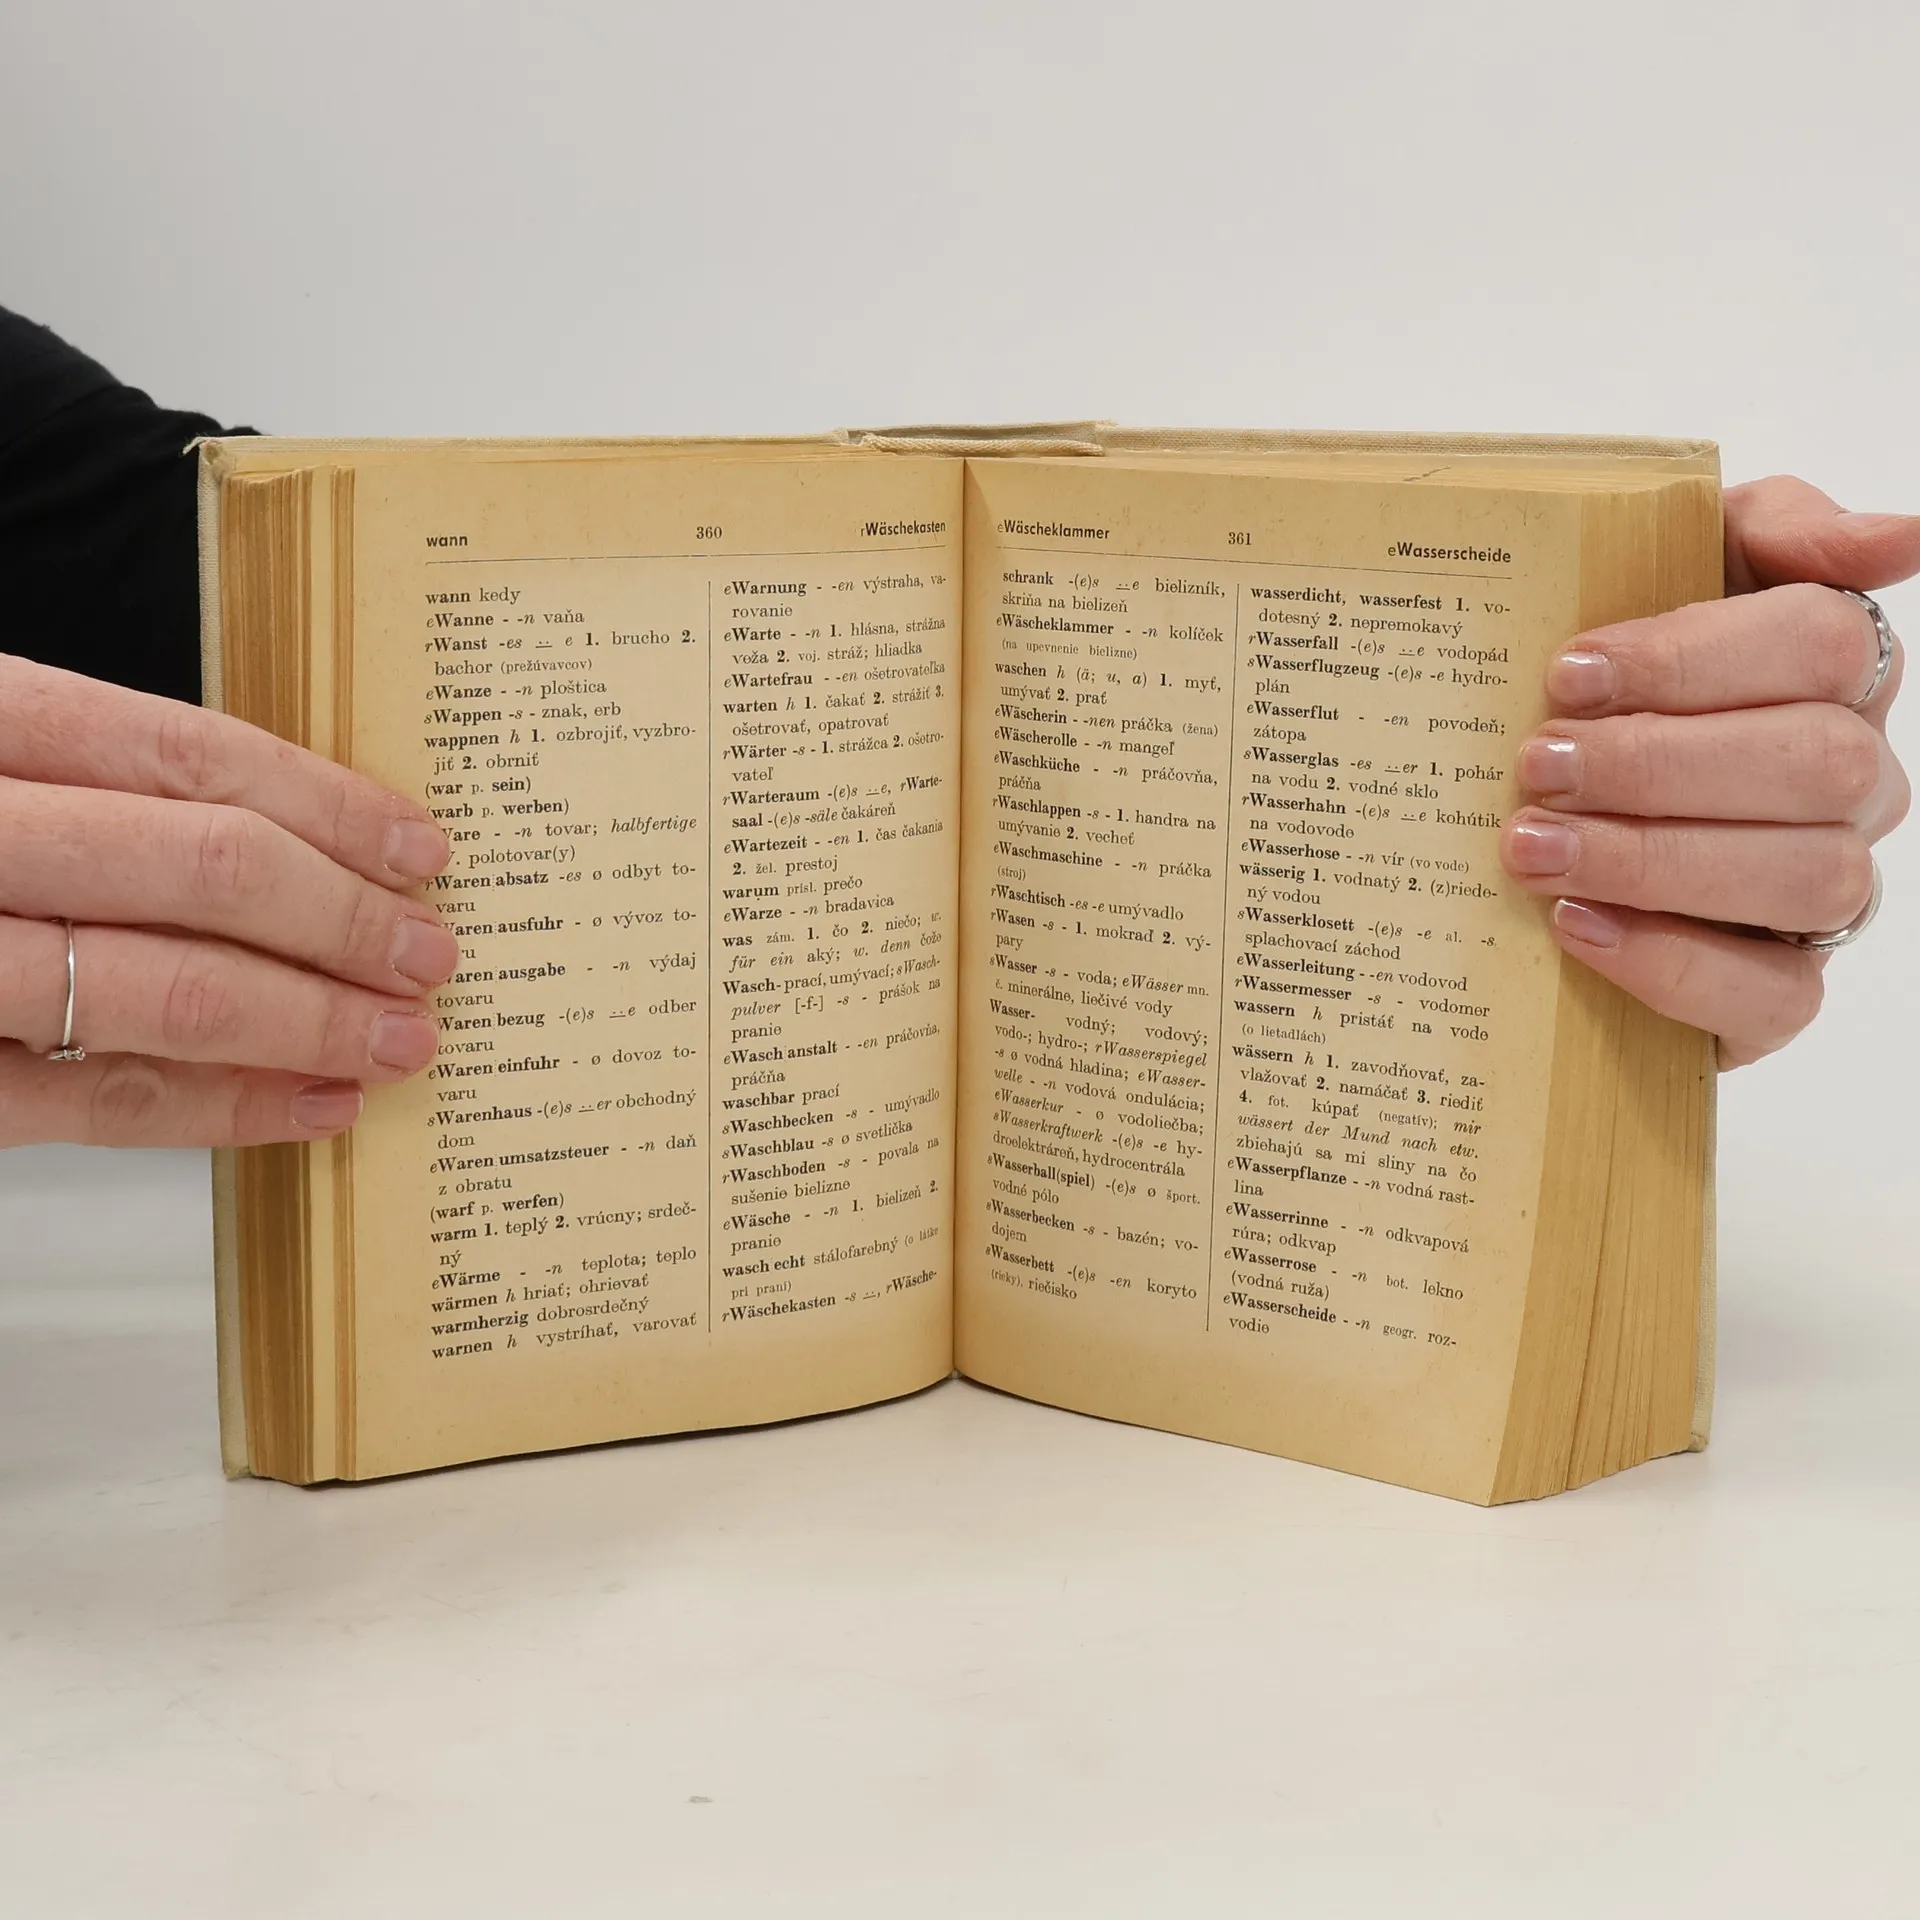 wann 360 rWäschekasten
wann kedy
eWanne - -n vaňa
rWanst -es ¨e 1. brucho 2.
bachor (prežúvavcov)
eWanze - -n ploštica
sWappen -s - znak, erb
wappnen h 1. ozbrojiť, vyzbro-
jiť 2. obrniť
(war p. sein)
(warb p. werben)
Ware - -n tovar; halbfertige
W. polotovar(y)
rWarenabsatz -es ø odbyt to-
varu
Warenausfuhr - ø vývoz to-
ru
Warenausgabe - -n výdaj
tovaru
Warenbezug -(e)s ¨e odber
tovaru
eWareneinfuhr - ø dovoz to-
varu
sWarenhaus -(e)s ¨er obchodný
dom
eWarenumsatzsteuer - -n daň
z obratu
(warf p. werfen)
warm 1. teplý 2. vrúcny; srdeč-
ný
eWärme - -n teplota; teplo
wärmen h hriať; ohrievať
warmherzig dobrosrdečný
warnen h vystríhať, varovať
eWarnung - -en výstraha, va-
rovanie
eWarte - -n 1. hlásna, strážna
veža 2. voj. stráž; hliadka
eWartefrau - -en ošetrovateľka
warten h 1. čakať 2. strážiť 3.
ošetrovať, opatrovať
rWärter -s - 1. strážca 2. ošetro-
vateľ
rWarteraum -(e)s ¨e, rWarte-
saal -(e)s -säle čakáreň
eWartezeit - -en 1. čas čakania
2. žel. prestoj
warum prísl. prečo
eWarze - -n bradavica
was zám. 1. čo 2. niečo; w.
für ein aký; w. denn čože
Wasch- prací, umývací; sWasch-
pulver [-f-] -s - prášok na
pranie
eWaschanstalt - -en práčovňa,
práčňa
waschbar prací
sWaschbecken -s - umývadlo
sWaschblau -s ø svetlička
rWaschboden -s - povala na
sušenie bielizne
eWäsche - -n 1. bielizeň 2.
pranie
waschecht stálofarebný (o látke
pri praní)
rWäschekasten -s ¨, rWäsche-
eWäscheklammer 361 eWasserscheide
schrank -(e)s ¨e bielizník,
skriňa na bielizeň
eWäscheklammer - -n kolíček
(na upevnenie bielizne)
waschen h (ä; u, a) 1. myť,
umývať 2. prať
eWäscherin - -nen práčka (žena)
eWäscherolle - -n mangeľ
eWaschküche - -n práčovňa,
práčňa
rWaschlappen -s - 1. handra na
umývanie 2. vecheť
eWaschmaschine - -n práčka
(stroj)
rWaschtisch -es -e umývadlo
rWasen -s - 1. mokraď 2. vý-
pary
sWasser -s - voda; eWässer mn.
č. minerálne, liečivé vody
Wasser- vodný; vodový;
vodo-; hydro-; rWasserspiegel
-s ø vodná hladina; eWasser-
welle - -n vodová ondulácia;
eWasserkur - ø vodoliečba;
sWasserkraftwerk -(e)s -e hy-
droelektráreň, hydrocentrála
sWasserball(spiel) -(e)s ø šport.
vodné pólo
sWasserbecken -s - bazén; vo-
dojem
sWasserbett -(e)s -en koryto
(rieky), riečisko
wasserdicht, wasserfest 1. vo-
dotesný 2. nepremokavý
rWasserfall -(e)s ¨e vodopád
sWasserflugzeug -(e)s -e hydro-
plán
eWasserflut - -en povodeň;
zátopa
sWasserglas -es ¨er 1. pohár
na vodu 2. vodné sklo
rWasserhahn -(e)s ¨e kohútik
na vodovode
eWasserhose - -n vír (vo vode)
wässerig 1. vodnatý 2. (z)riede-
ný vodou
sWasserklosett -(e)s -e al. -s
splachovací záchod
eWasserleitung - -en vodovod
rWassermesser -s - vodomer
wassern h pristáť na vode
(o lietadlách)
wässern h 1. zavodňovať, za-
vlažovať 2. namáčať 3. riediť
4. fot. kúpať (negatív); mir
wässert der Mund nach etw.
zbiehajú sa mi sliny na čo
eWasserpflanze - -n vodná rast-
lina
eWasserrinne - -n odkvapová
rúra; odkvap
eWasserrose - -n bot. lekno
(vodná ruža)
eWasserscheide - -n geogr. roz-
vodie